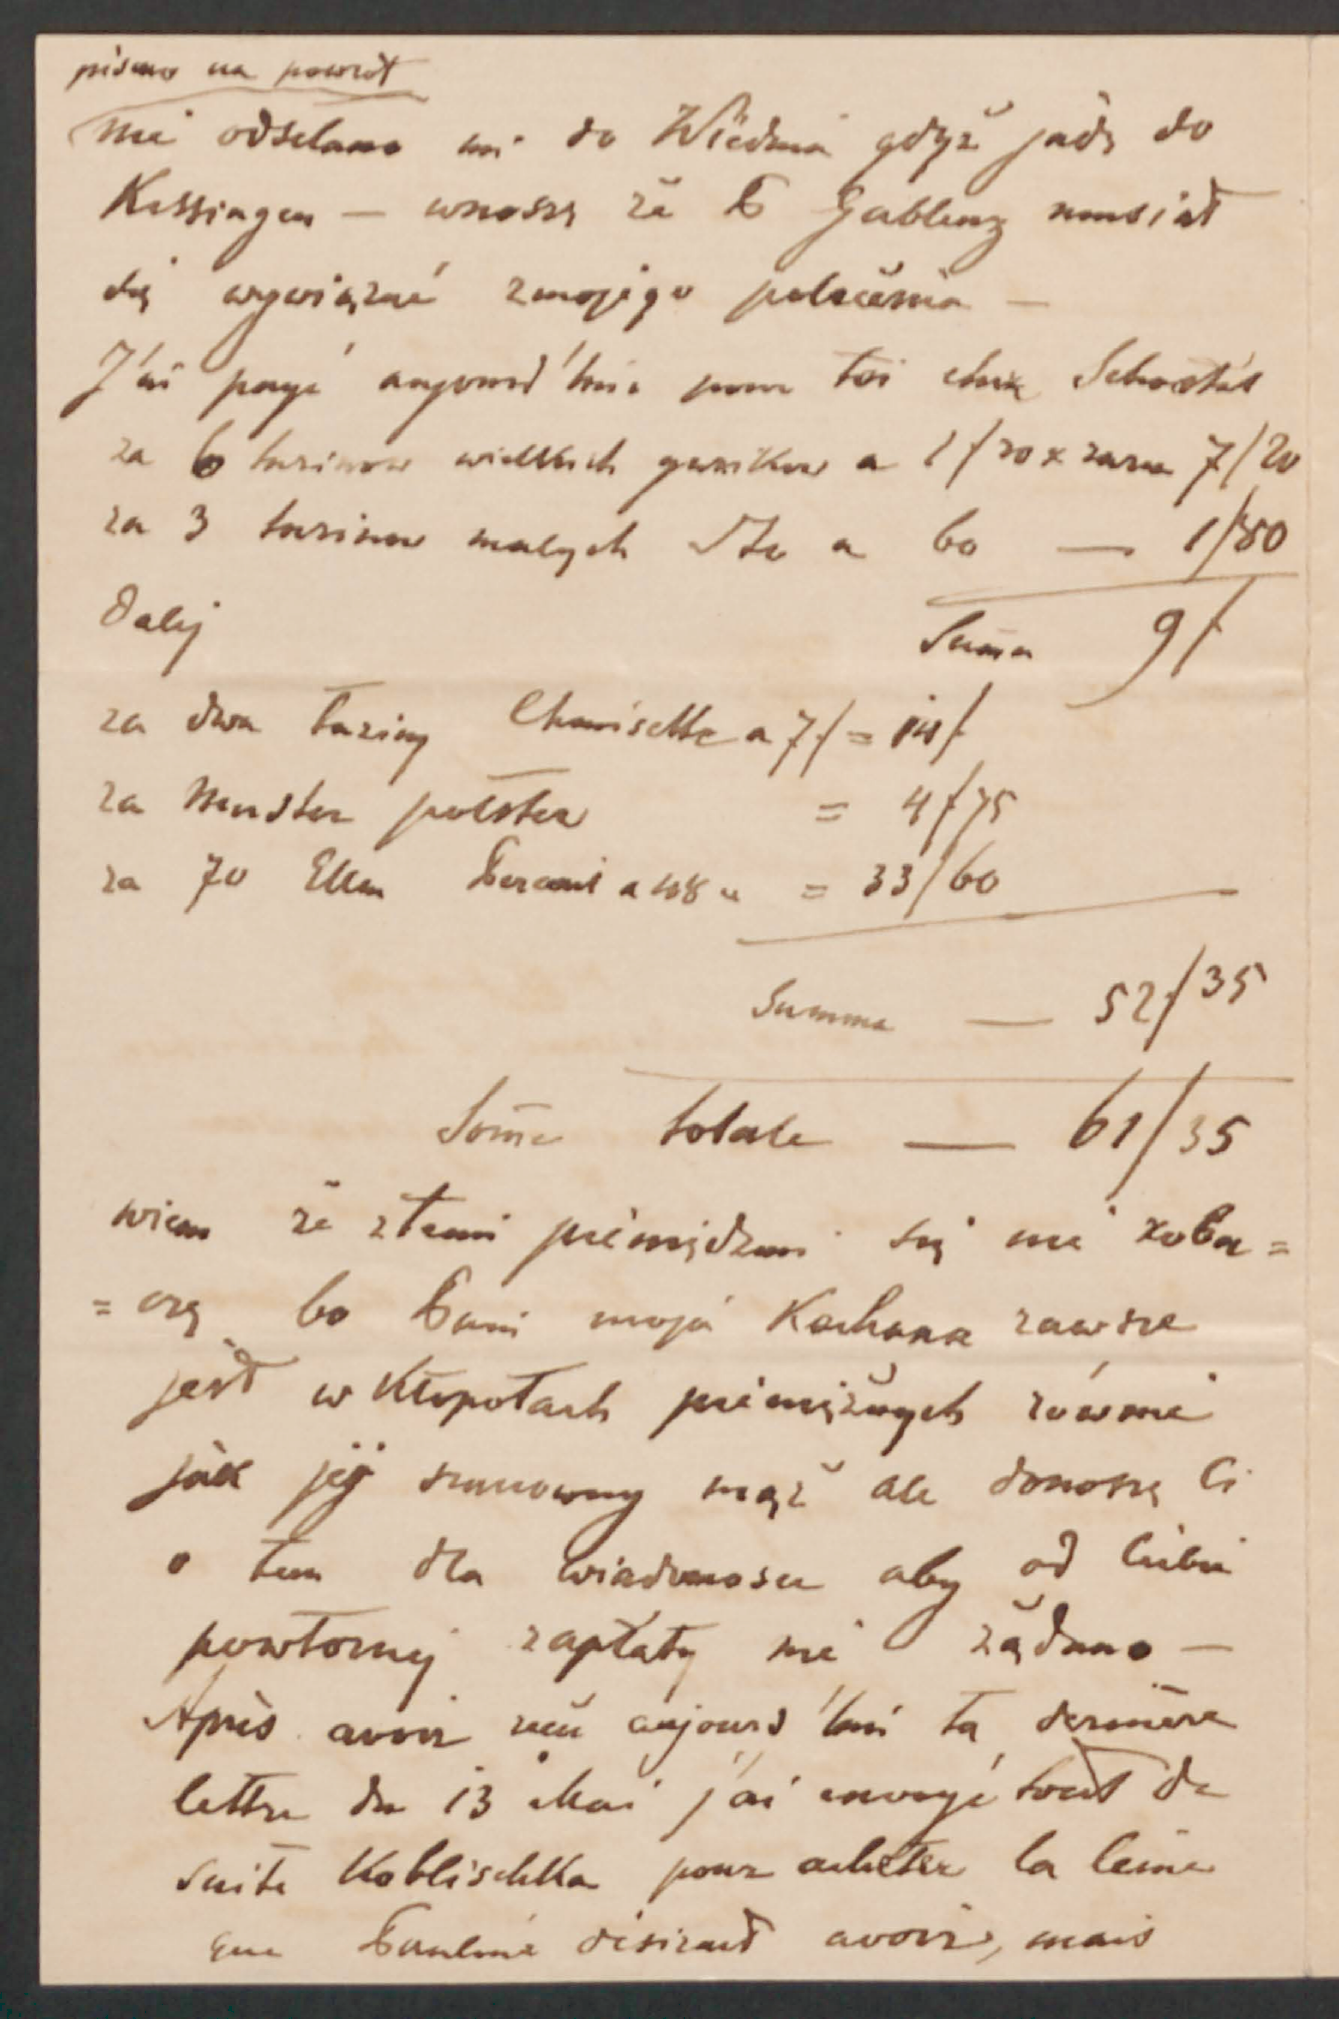 pismo na powrót
nie odsełano mi do Wiednia gdyż jadę do
Kissingen — wnoszę że P Gablenz musiał
się wywiązać zmojego polecenia —
J'ai payé aujourd'hui pour toi chez
za 6 tuzinow wielkich guzikow a 1f 20x razem 7f20
za 3 tuzinow małych dto a 60 — 1f80
Dalej Suma 9f
za dwa tuziny Chemisette a 7f = 14f
za Muster polster = 4f75
za 70 Ellen a 48 x = 33f60
Summa — 52f35
Some totale — 61f35
wiem że ztemi pieniędzmi się nie zoba=
=czę bo Pani moja Kochana zawsze
jest w Kłopotach pieniężnych rownie
jak jej szanowny mąż ale donoszę Ci
o tem dla wiadomosci aby od Ciebie
powtornej zapłaty nie żądano —
Après avoir reçu aujourd'hui ta dernière
lettre du 13 Mai j'ai envoyé tout de
suite Koblischka pour acheter la leine
que Pauline désirait avoir, mais